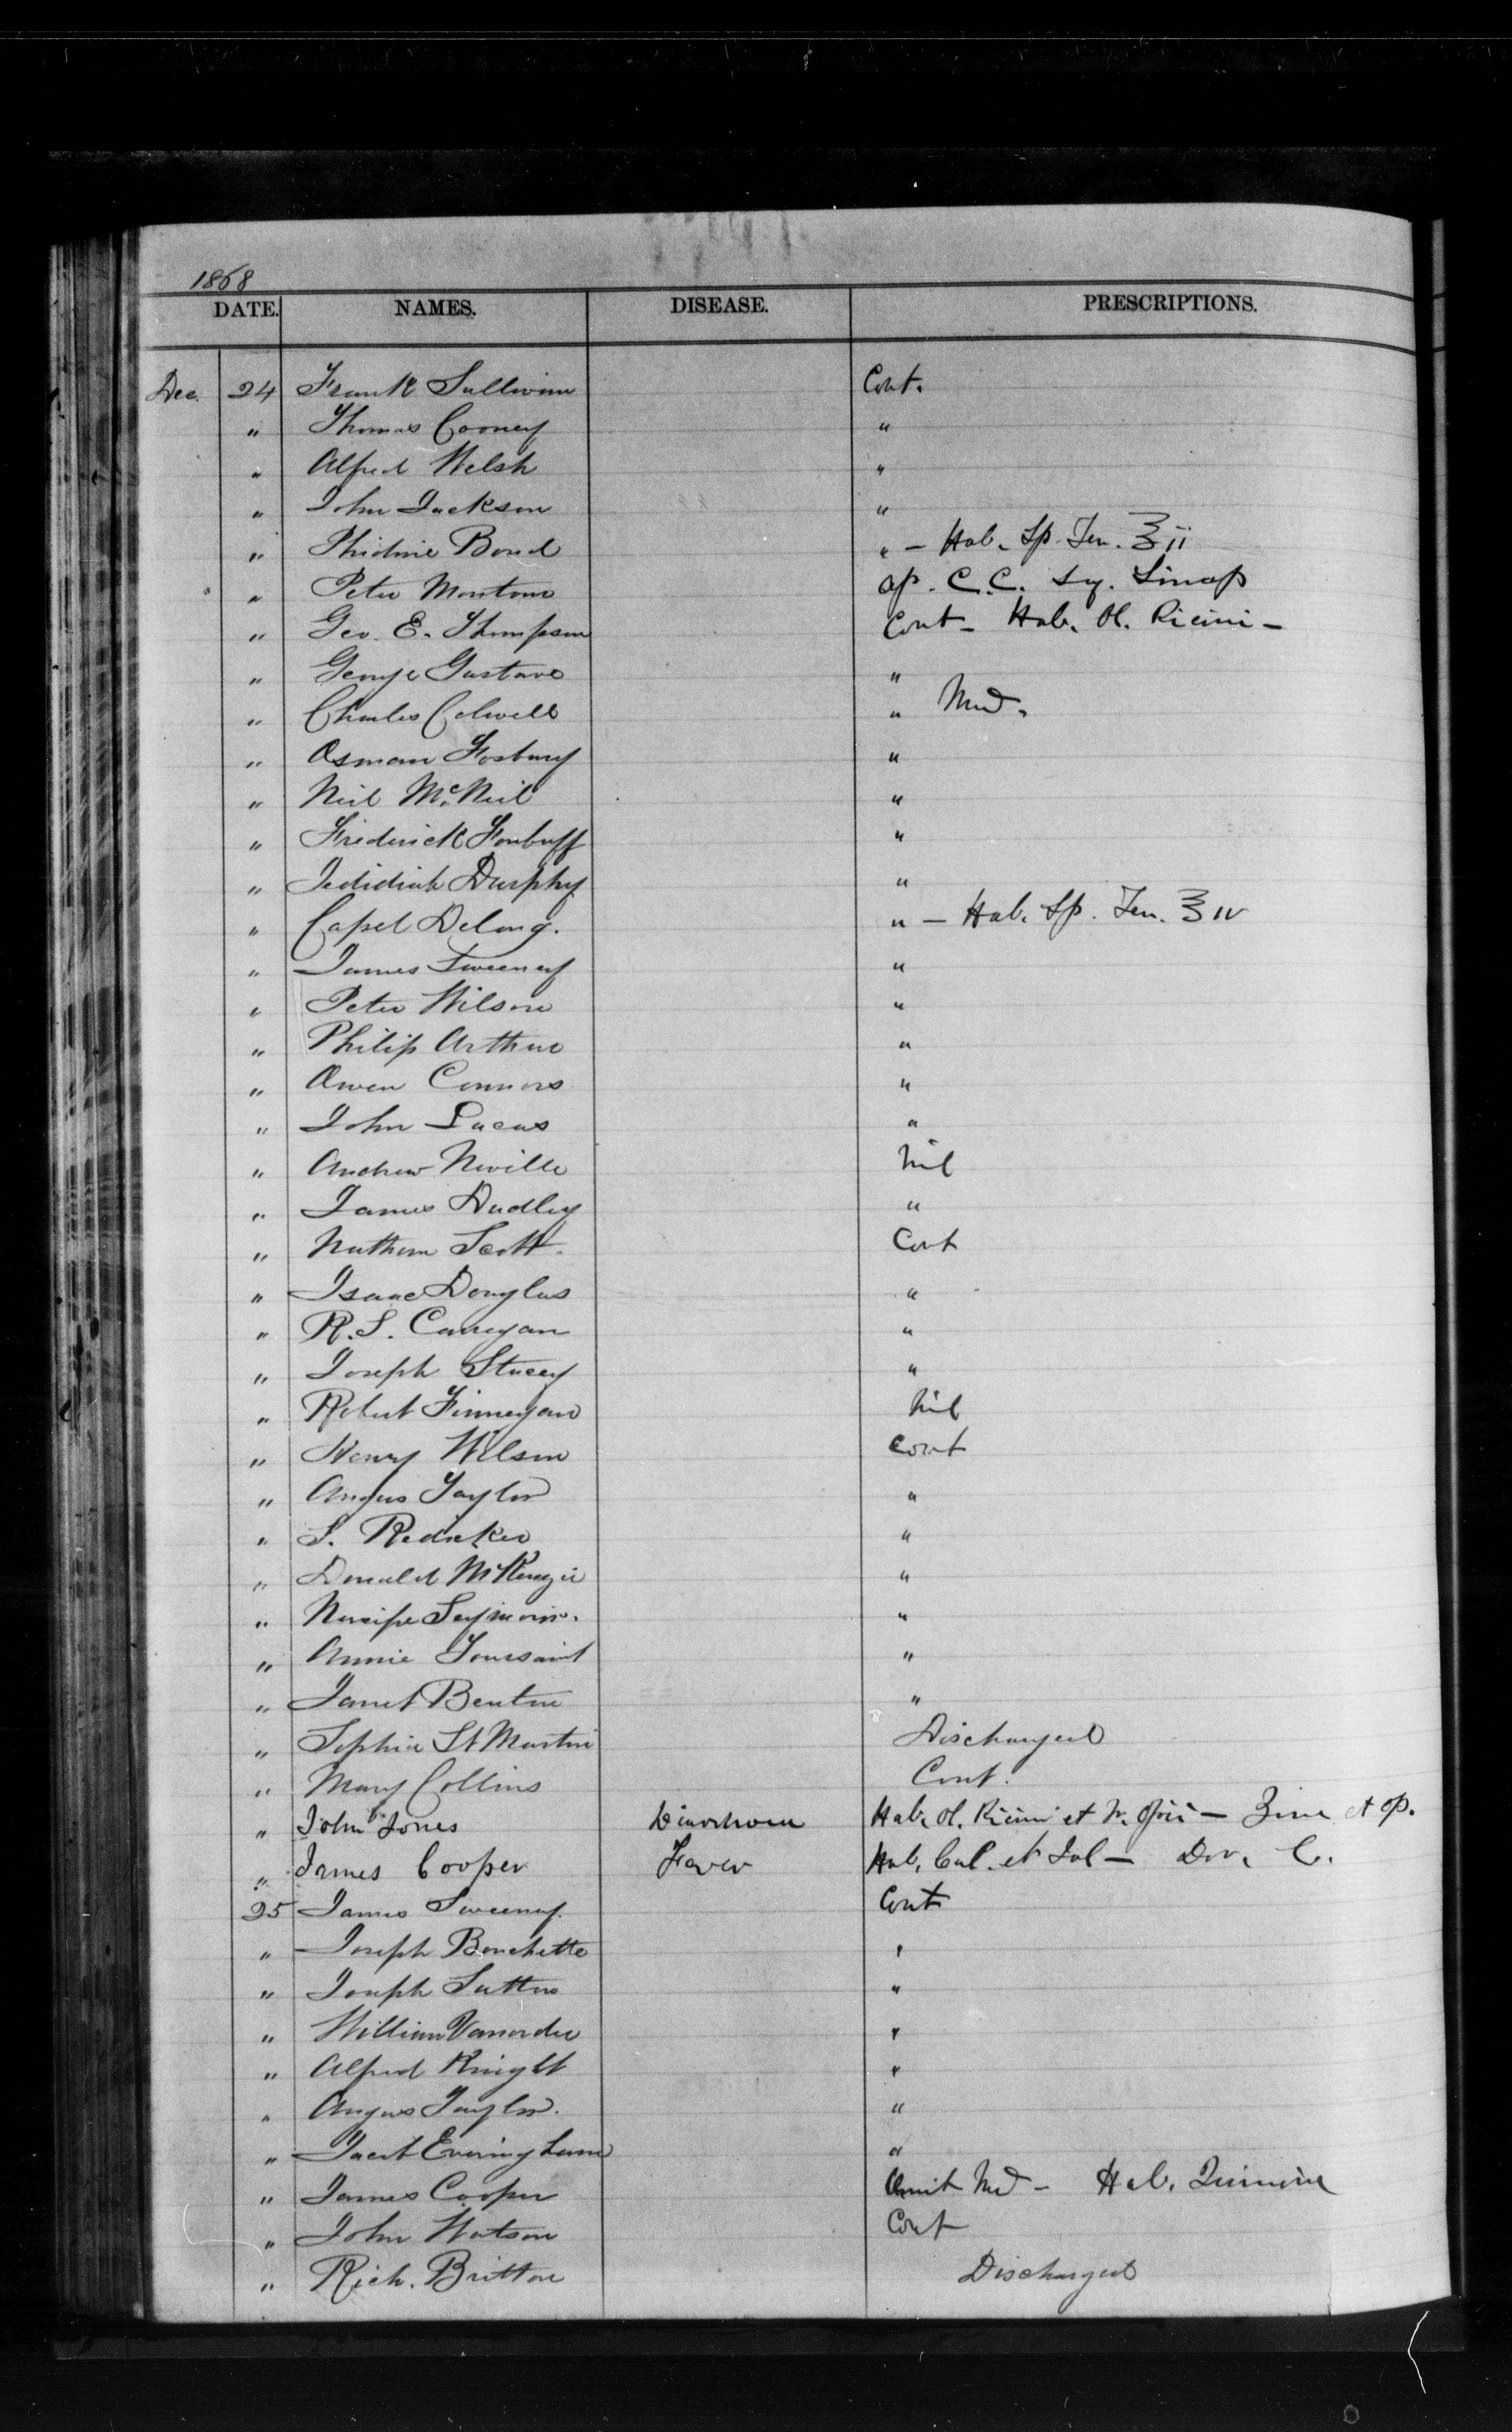 1868
DATE. NAMES. DISEASE. PRESCRIPTIONS.
Dec. 24 Frank Sullivan Cont.
" Thomas Cooney "
" Alfred Welsh "
" John Jackson "
" Phidime Bond " - Hab. Sp. Ten. ʒii
" Peter Montour Ap. C.C. Sinap
" Geo. E. Thompson Cont - Hab. Ol. Ricini -
" George Gustave "
" Charles Colwell " Med.
" Osman Fosbury "
" Neil McNeil "
" Friderick "
" Jedidiah Durphy "
" Capel Delong. " - Hab. Sp. Ten. ʒiv
" James Sweeney "
" Peter Wilson "
" Philip Arthur "
" Owen Connors "
" John Lucas "
" Andrew Neville Nil
" James Dudley "
" Nathan Scott. Cont
" Isaac Douglas "
" R. S. Carregan "
" Joseph Stacey "
" Robert Finnegan Nil
" Henry Wilson Cont
" Angus Taylor "
" S. Redicker "
" Donald McKenzie "
" Seymour. "
" Annie Toussaint "
" Janet Benton "
" Sophia St Martin Discharged
" Mary Collins Cont.
" John Jones Diarrhoea Hab. Ol. Ricini et Tr. Opii - Zinc et Op.
" James Cooper Fever Hab. Cal. et Jal - Dov.
25 James Sweeney. Cont
" Joseph Bouchette "
" Joseph Sutton "
" William Vanorder "
" Alfred Knight "
" Angus Taylor. "
" Jacob Everingham "
" James Cooper Omit Med - Hab. Quinine
" John Watson Cont
" Rich. Britton Discharged